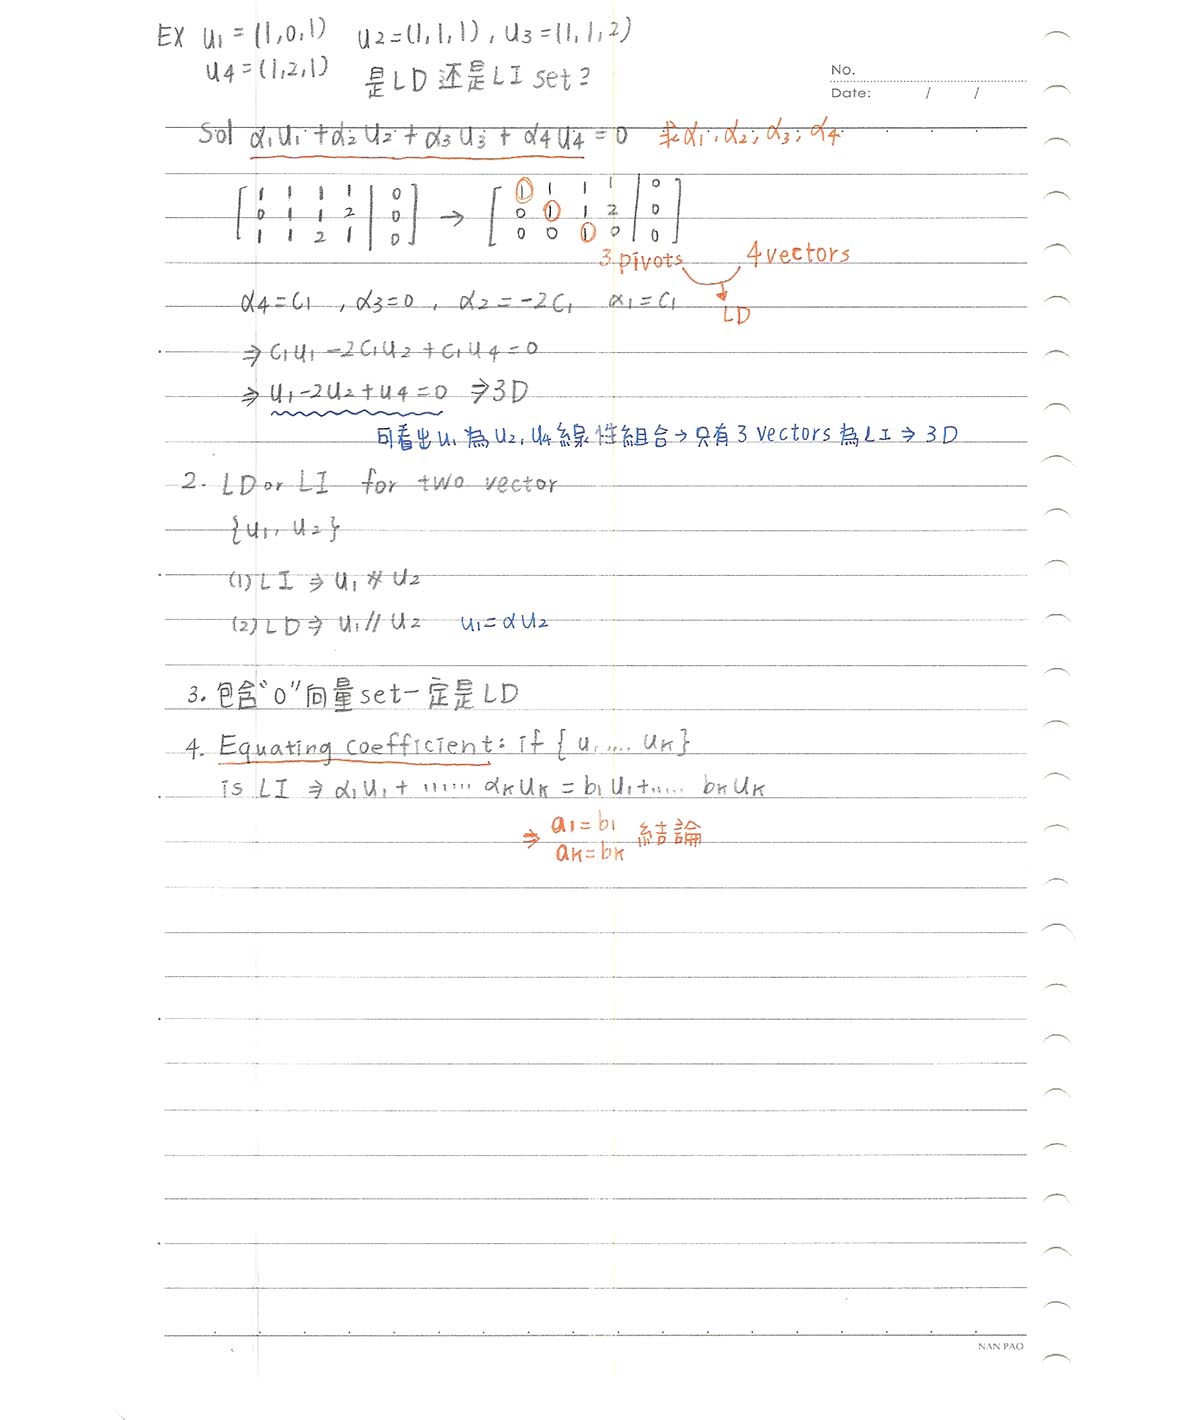 EX u1 = (1,0,1) u2=(1,1,1), u3=(1,1,2)
u4=(1,2,1) 是LD 还是LI set?
No.
Date: / /
Sol α1u1 + α2u2 + α3u3 + α4u4 = 0 求α1, α2, α3, α4
[1 1 1 1 | 0] → [1 1 1 1 | 0]
[0 1 1 2 | 0] [0 1 1 2 | 0]
[1 1 2 1 | 0] [0 0 1 0 | 0]
3 pivots 4 vectors
LD
α4=C1 , α3=0 , α2=-2C1 α1=C1
⇒ C1u1-2C1u2+C1u4=0
⇒ u1-2u2+u4=0 ⇒3D
可看出u1為u2,u4線性組合→只有3 vectors為LI⇒3D
2. LD or LI for two vector
{u1, u2}
(1) LI ⇒ u1 ∦ u2
(2) LD⇒ u1 // u2 u1=αu2
3. 包含"0"向量set一定是LD
4. Equating coefficient: if { u1 .... uk}
is LI ⇒ α1u1+ ...... αkuk = b1u1+..... bkuk
⇒ a1=b1
ak=bk 結論
NAN PAO